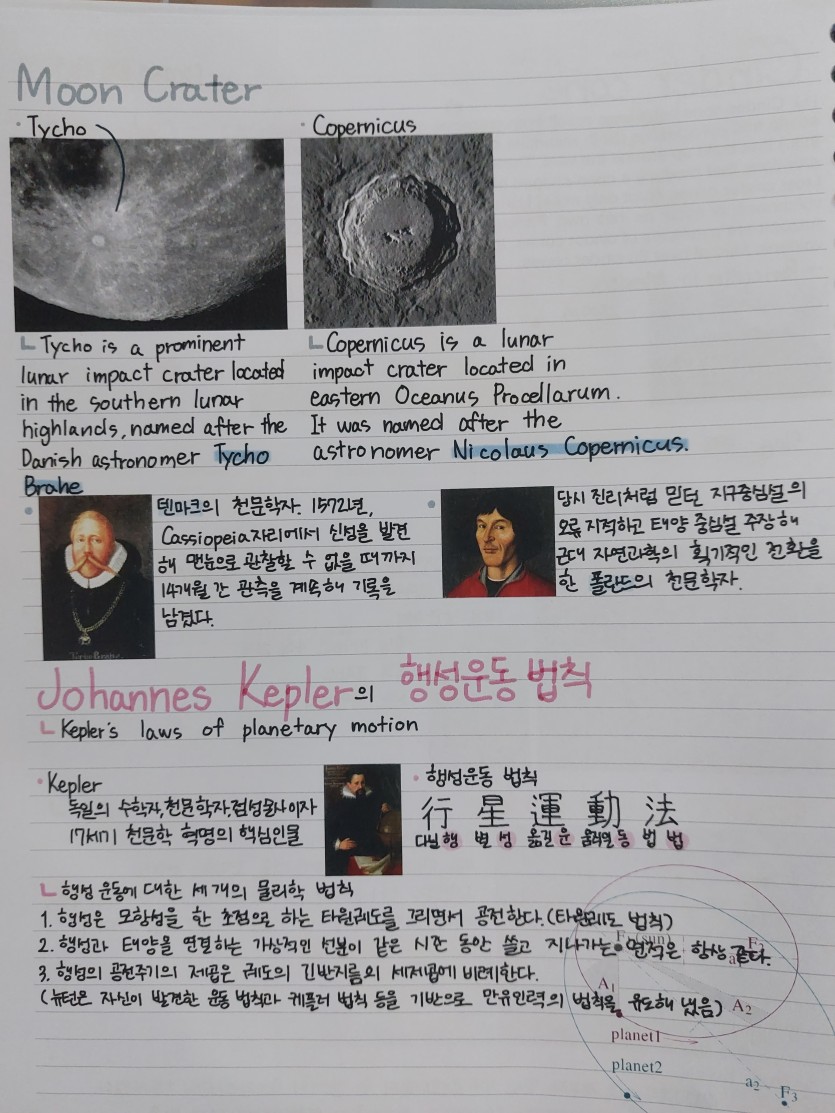 Moon Crater
· Tycho
· Copernicus
Tycho is a prominent
lunar impact crater located
in the southern lunar
highlands, named after the
Danish astronomer Tycho
Brahe
Copernicus is a lunar
impact crater located in
eastern Oceanus Procellarum.
It was named after the
astronomer Nicolaus Copernicus.
덴마크의 천문학자. 1572년,
Cassiopeia자리에서 신성을 발견
해 맨눈으로 관찰할 수 없을 때까지
14개월 간 관측을 계속해 기록을
남겼다.
당시 진리처럼 믿던 지구중심설의
오류 지적하고 태양 중심설 주장해
근대 자연과학의 획기적인 전환을
한 폴란드의 천문학자.
Johannes Kepler의 행성운동 법칙
Kepler's laws of planetary motion
· Kepler
독일의 수학자, 천문학자, 점성술사이자
17세기 천문학 혁명의 핵심인물
· 행성운동 법칙
行 星 運 動 法
다닐 행 별 성 옮길 운 움직일 동 법 법
행성 운동에 대한 세 개의 물리학 법칙
1. 행성은 모항성을 한 초점으로 하는 타원궤도를 그리면서 공전한다. (타원궤도 법칙)
2. 행성과 태양을 연결하는 가상적인 선분이 같은 시간 동안 쓸고 지나가는 면적은 항상 같다.
3. 행성의 공전주기의 제곱은 궤도의 긴반지름의 세제곱에 비례한다.
(뉴턴은 자신이 발견한 운동 법칙과 케플러 법칙 등을 기반으로 만유인력의 법칙을 유도해 냈음)
F₂
A₁
A₂
planet1
planet2
a₂
F₃